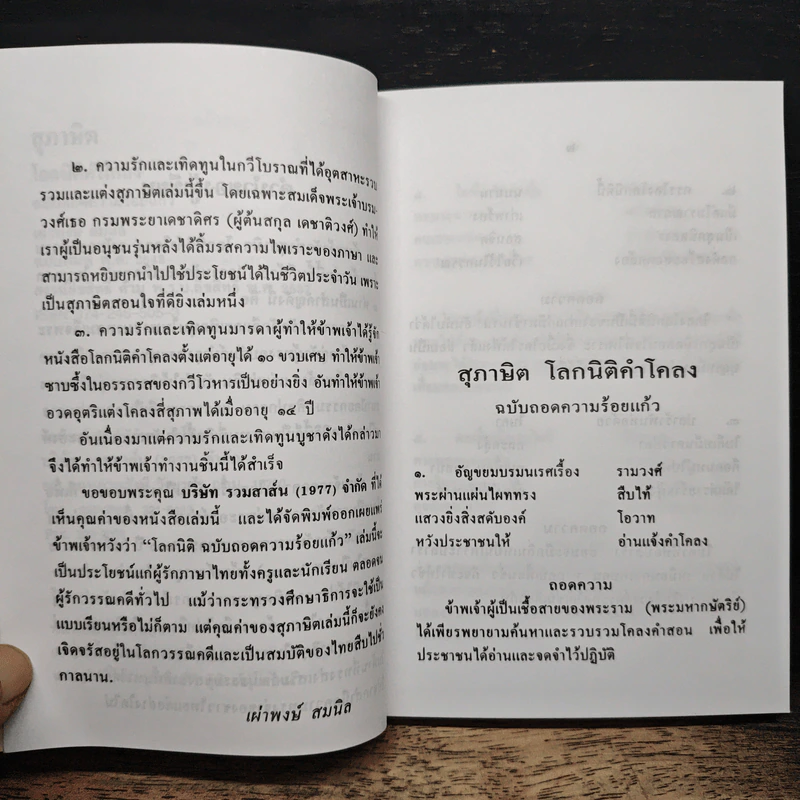 ๒. ความรักและเทิดทูนในกวีโบราณที่ได้อุตสาหะรวบ
รวมและแต่งสุภาษิตเล่มนี้ขึ้น โดยเฉพาะสมเด็จพระเจ้าบรม-
วงศ์เธอ กรมพระยาเดชาดิศร (ผู้ต้นสกุล เดชาติวงศ์) ทำให้
เราผู้เป็นอนุชนรุ่นหลังได้ลิ้มรสความไพเราะของภาษา และ
สามารถหยิบยกนำไปใช้ประโยชน์ได้ในชีวิตประจำวัน เพราะ
เป็นสุภาษิตสอนใจที่ดียิ่งเล่มหนึ่ง
๓. ความรักและเทิดทูนมารดาผู้ทำให้ข้าพเจ้าได้รู้จัก
หนังสือโลกนิติคำโคลงตั้งแต่อายุได้ ๑๐ ขวบเศษ ทำให้ข้าพเจ้า
ซาบซึ้งในอรรถรสของกวีโวหารเป็นอย่างยิ่ง อันทำให้ข้าพเจ้า
อวดอุตริแต่งโคลงสี่สุภาพได้เมื่ออายุ ๑๔ ปี
อันเนื่องมาแต่ความรักและเทิดทูนบูชาดังได้กล่าวมา
จึงได้ทำให้ข้าพเจ้าทำงานชิ้นนี้ได้สำเร็จ
ขอขอบพระคุณ บริษัท รวมสาส์น (1977) จำกัด ที่ได้
เห็นคุณค่าของหนังสือเล่มนี้ และได้จัดพิมพ์ออกเผยแพร่
ข้าพเจ้าหวังว่า “โลกนิติ ฉบับถอดความร้อยแก้ว” เล่มนี้จะ
เป็นประโยชน์แก่ผู้รักภาษาไทยทั้งครูและนักเรียน ตลอดจน
ผู้รักวรรณคดีทั่วไป แม้ว่ากระทรวงศึกษาธิการจะใช้เป็น
แบบเรียนหรือไม่ก็ตาม แต่คุณค่าของสุภาษิตเล่มนี้ก็จะยังคง
เจิดจรัสอยู่ในโลกวรรณคดีและเป็นสมบัติของไทยสืบไปชั่ว
กาลนาน.
เผ่าพงษ์ สมนิล
สุภาษิต โลกนิติคำโคลง
ฉบับถอดความร้อยแก้ว
๑. อัญขยมบรมนเรศเรื่อง รามวงศ์
พระผ่านแผ่นไผททรง สืบไท้
แสวงยิ่งสิ่งสดับองค์ โอวาท
หวังประชาชนให้ อ่านแจ้งคำโคลง
ถอดความ
ข้าพเจ้าผู้เป็นเชื้อสายของพระราม (พระมหากษัตริย์)
ได้เพียรพยายามค้นหาและรวบรวมโคลงคำสอน เพื่อให้
ประชาชนได้อ่านและจดจำไว้ปฏิบัติ